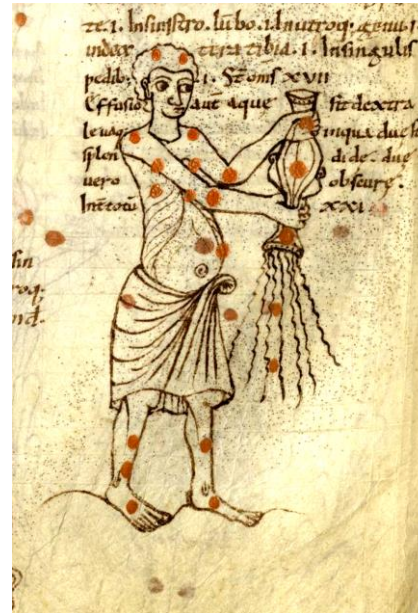 te. i. In sinistro. lūbo. i. In utroq; genu. i
in dext tira tibia. i. In singulis
pedib; i. St̄ oms̄ xvii
Effusio aut̄ aque sit dextra
in qua due
splen dide. due
vero obscure.
In totū xxi
sin
roq.